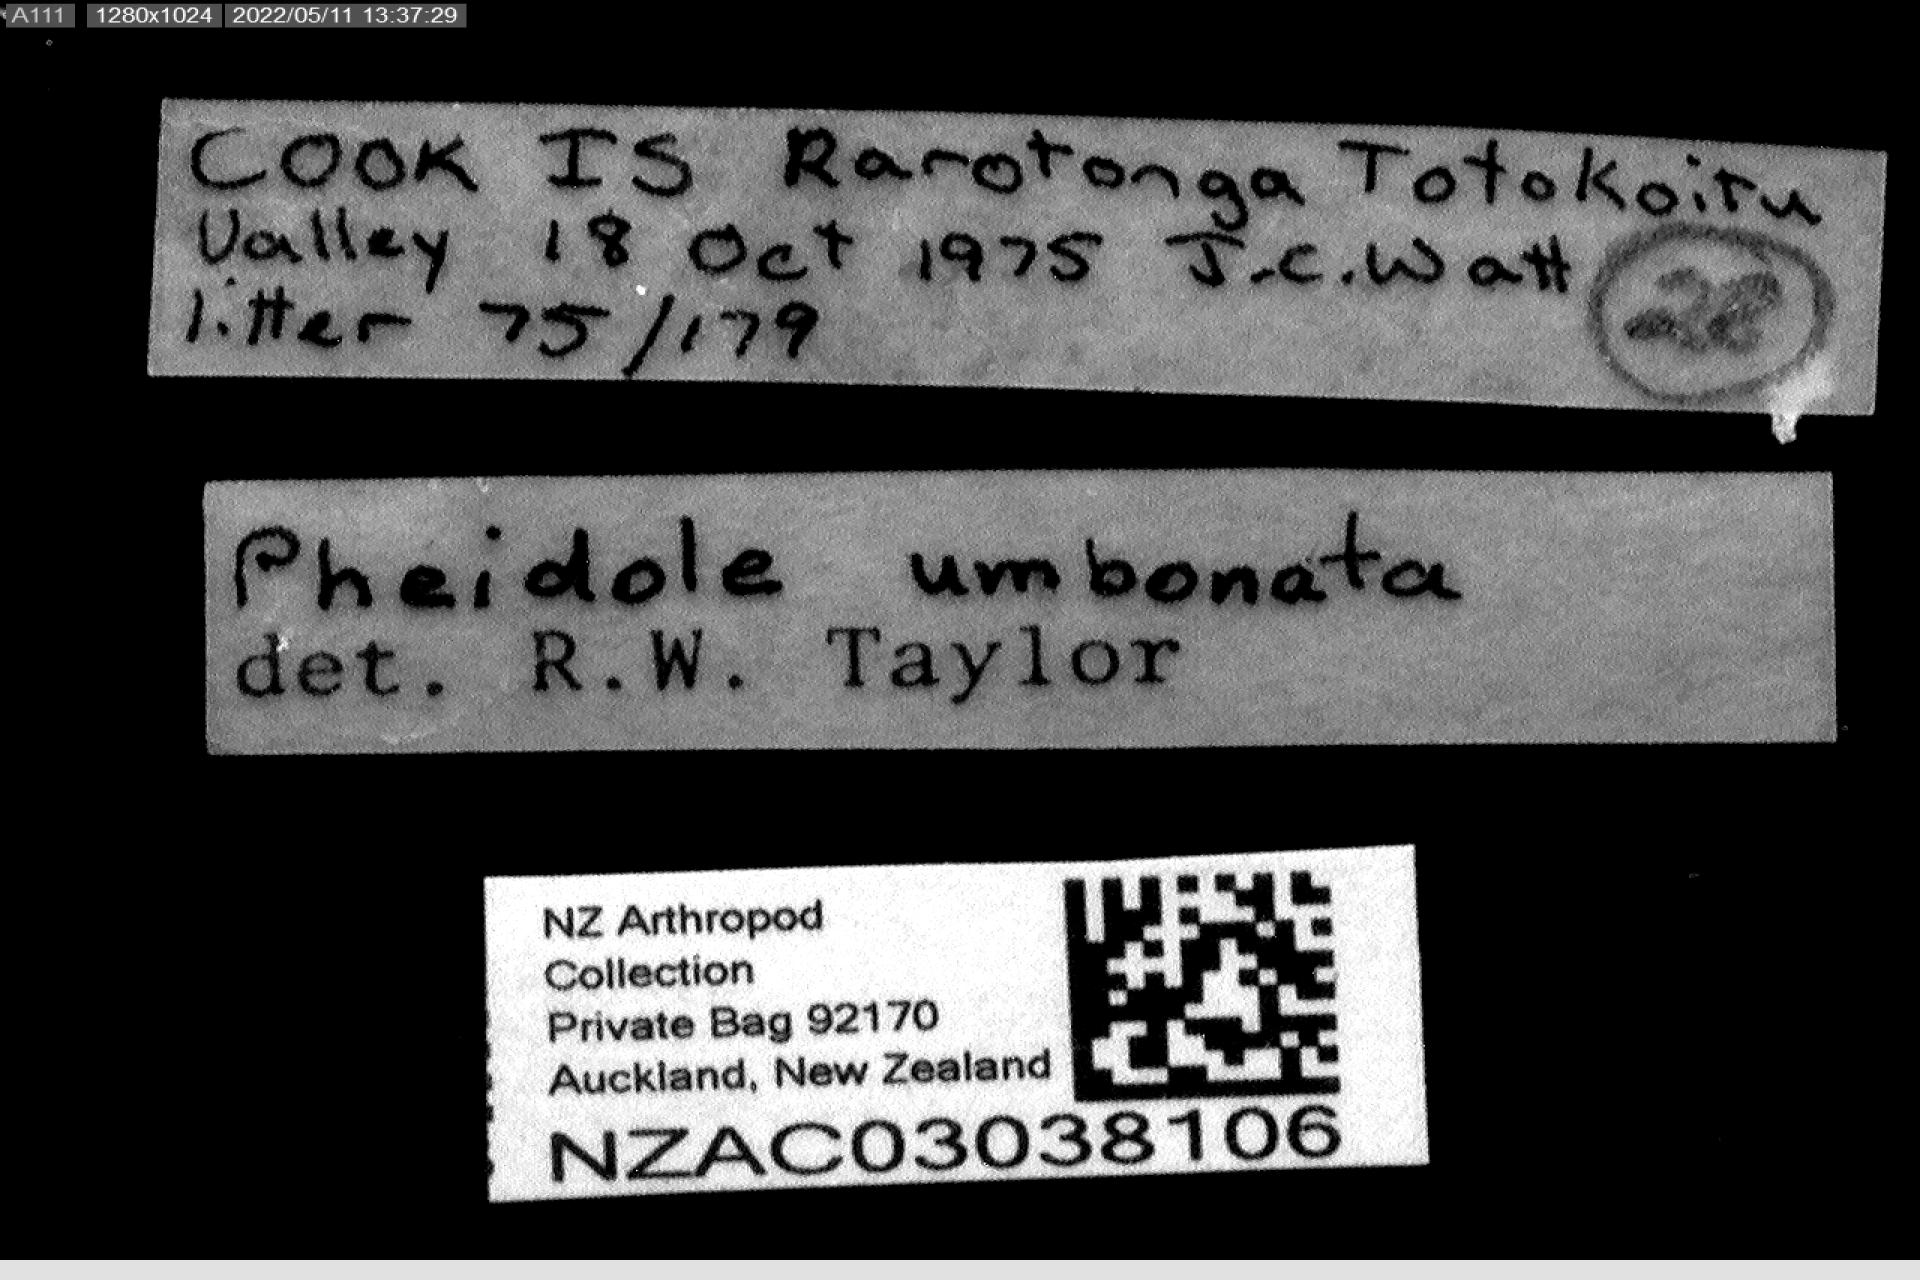 A111 1280x1024 2022/05/11 13:37:29
COOK IS Rarotonga Totokoitu
Valley 18 Oct 1975 J.C. Watt
litter 75/179
28
Pheidole umbonata
det. R.W. Taylor
NZ Arthropod
Collection
Private Bag 92170
Auckland, New Zealand
NZAC03038106